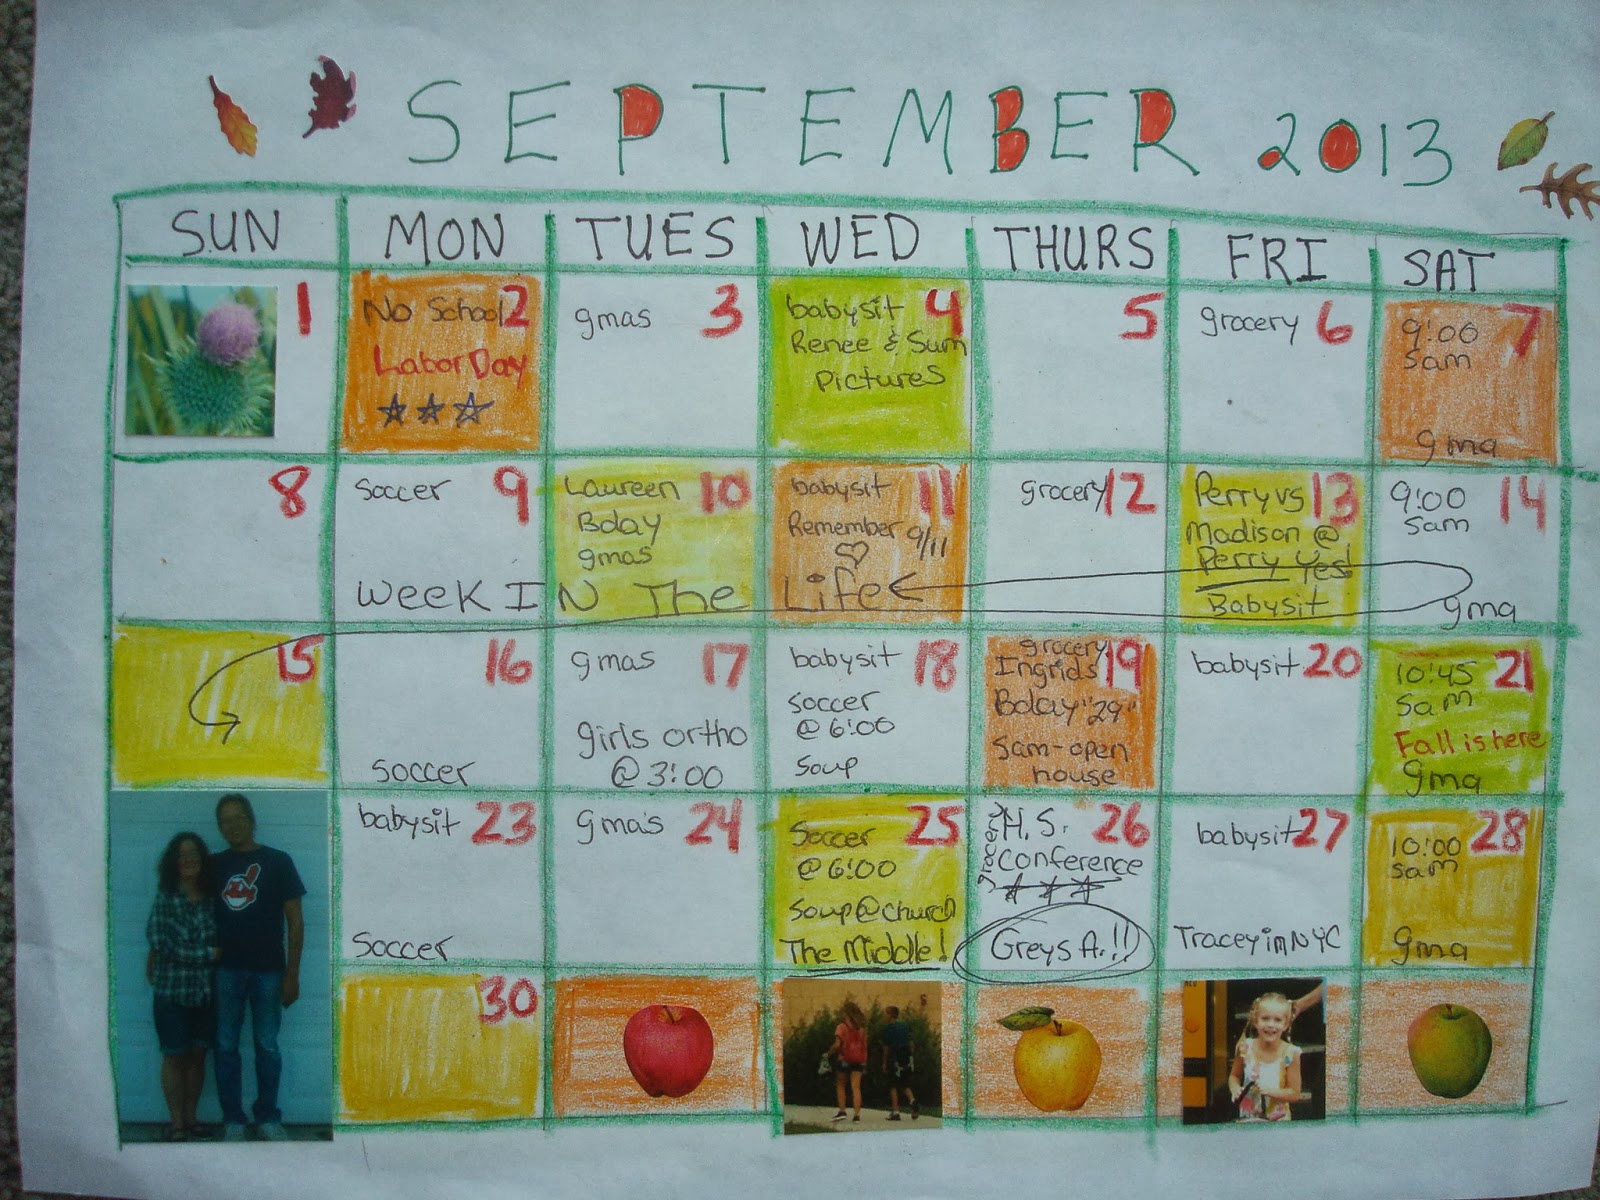 SEPTEMBER 2013
SUN MON TUES WED THURS FRI SAT
1
No School 2
Labor Day
gmas 3
babysit 4
Renee & Sum
Pictures
5
grocery 6
9:00 7
sam
gma
8
soccer 9
Laureen 10
Bday
gmas
babysit 11
Remember 9/11
grocery 12
Perry vs 13
Madison @
Perry Yes!
Babysit
9:00 14
sam
gma
Week IN The Life
15
16
soccer
gmas 17
girls ortho
@ 3:00
babysit 18
soccer
@ 6:00
soup
grocery
Ingrids 19
Bday "29"
Sam-open
house
babysit 20
10:45 21
Sam
Fall is here
gma
babysit 23
soccer
gma's 24
Soccer 25
@ 6:00
Soup @ church
The Middle!
grocery
H.S. 26
Conference
Greys A.!!
babysit 27
Tracey in NYC
10:00 28
sam
gma
30